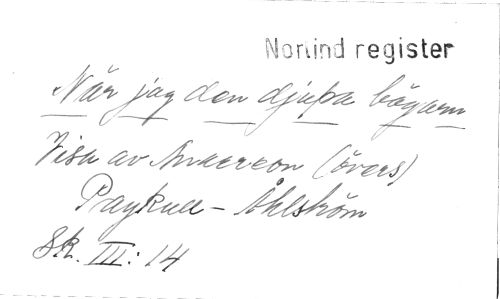 Norlind register
När jag den djupa bägarn
Visa av Anacreon (övers)
Paykull - Åhlström
Sk. III: 14